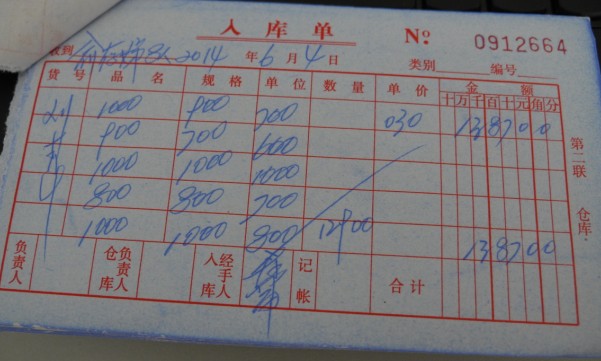 入库单 № 0912664
收到 2014 年 6 月 4 日 类别 编号
货号 品名 规格 单位 数量 单价 金额
十万千百十元角分
1000 900 700 030 138700
900 700 600
1000 1000 1000
800 800 700
1000 1000 800 12900
138700
负责人 仓库负责人 入库经手人 记帐 合计
第二联 仓库